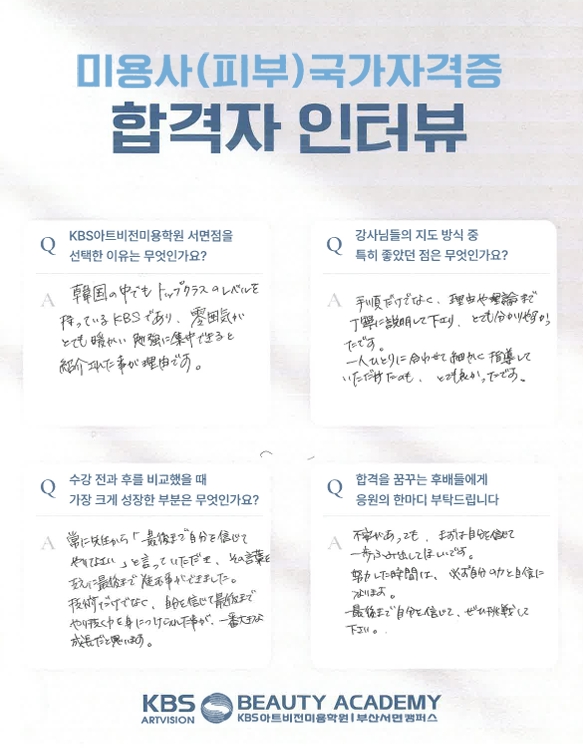 미용사(피부)국가자격증
합격자 인터뷰
Q KBS아트비전미용학원 서면점을
선택한 이유는 무엇인가요?
A 韓国の中でもトップクラスのレベルを
持っているKBSであり、雰囲気が
とても暖かい 勉強に集中できると
紹介された事が理由です。
Q 강사님들의 지도 방식 중
특히 좋았던 점은 무엇인가요?
A 手順だけでなく、理由や理論まで
丁寧に説明して下さり、とても分かりやすかっ
たです。
一人ひとりに合わせて細かく指導して
いただけたのも、とても良かったです。
Q 수강 전과 후를 비교했을 때
가장 크게 성장한 부분은 무엇인가요?
A 常に先生から「最後まで自分を信じて
やりなさい」と言っていただき、その言葉を
支えに最後まで 事ができました。
技術だけでなく、自分を信じて最後まで
やり抜く力を身につけられた事が、一番大きな
成長だと思います。
Q 합격을 꿈꾸는 후배들에게
응원의 한마디 부탁드립니다
A 不安があっても、まずは自分を信じて
一歩ふみ出してほしいです。
努力した時間は、必ず自分の力と自信に
なります。
最後まで自分を信じて、ぜひ挑戦して
下さい。
KBS BEAUTY ACADEMY
ARTVISION KBS아트비전미용학원|부산서면캠퍼스